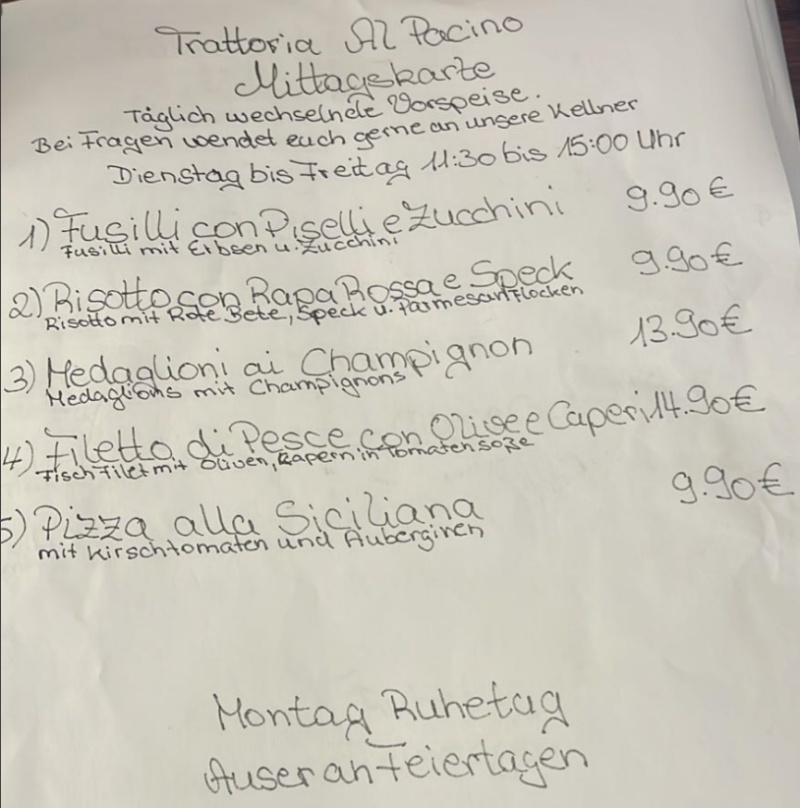 Trattoria Al Pacino
Mittagskarte
Täglich wechselnde Vorspeise.
Bei Fragen wendet euch gerne an unsere Kellner
Dienstag bis Freitag 11:30 bis 15:00 Uhr
1) Fusilli con Piselli e Zucchini 9.90€
Fusilli mit Erbsen u. Zucchini
2) Risotto con Rapa Rossa e Speck 9.90€
Risotto mit Rote Bete, Speck u. Parmesanflocken
3) Medaglioni ai Champignon 13.90€
Medaglions mit Champignons
4) Filetto di Pesce con Olive e Caperi 14.90€
Fischfilet mit Oliven, Kapern in Tomatensoße
5) Pizza alla Siciliana 9.90€
mit Kirschtomaten und Auberginen
Montag Ruhetag
Auser an Feiertagen